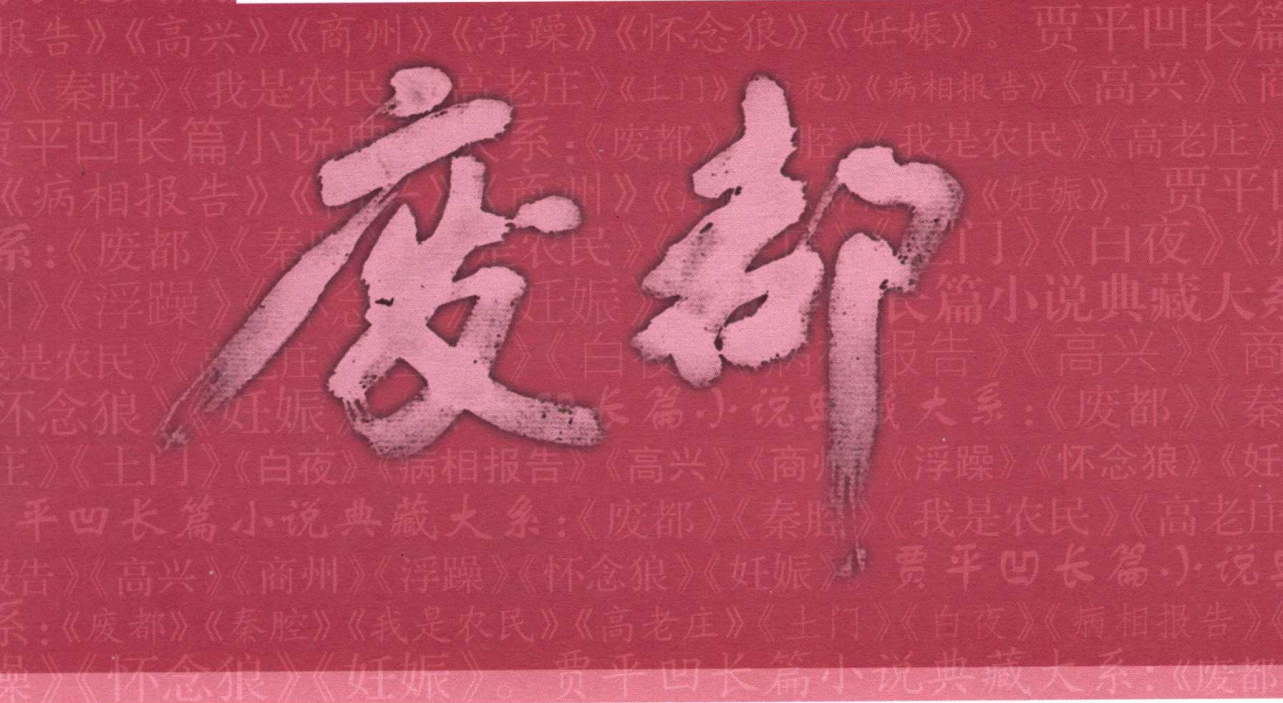 报告》《高兴》《商州》《浮躁》《怀念狼》《妊娠》。贾平凹长篇
》《秦腔》《我是农民 高老庄》《土门》 夜》《病相报告》《高兴》《商
平凹长篇小说典 系:《废都》 腔》 我是农民》《高老庄》
《病相报告》《 商州》《 《妊娠》 贾平
系:《废都》《秦 农民》 门》《白夜》《
《浮躁》 妊娠 长篇小说典藏大系
是农民》《 庄 《白 报告》《高兴》《商
怀念狼》《妊娠 长篇小说典藏大系:《废都》《秦
庄》《土门》《白夜》《病相报告》《高兴》《商州 《浮躁》《怀念狼》《妊
平凹长篇小说典藏大系:《废都》《秦腔》《我是农民》《高老庄
报告》《高兴》《商州》《浮躁》《怀念狼》《妊娠》 贾平凹长篇小说
系:《废都》《秦腔》《我是农民》《高老庄》《土门》《白夜》《病相报告》
躁》《怀念狼》《妊娠》。贾平凹长篇小说典藏大系:《废都
废都